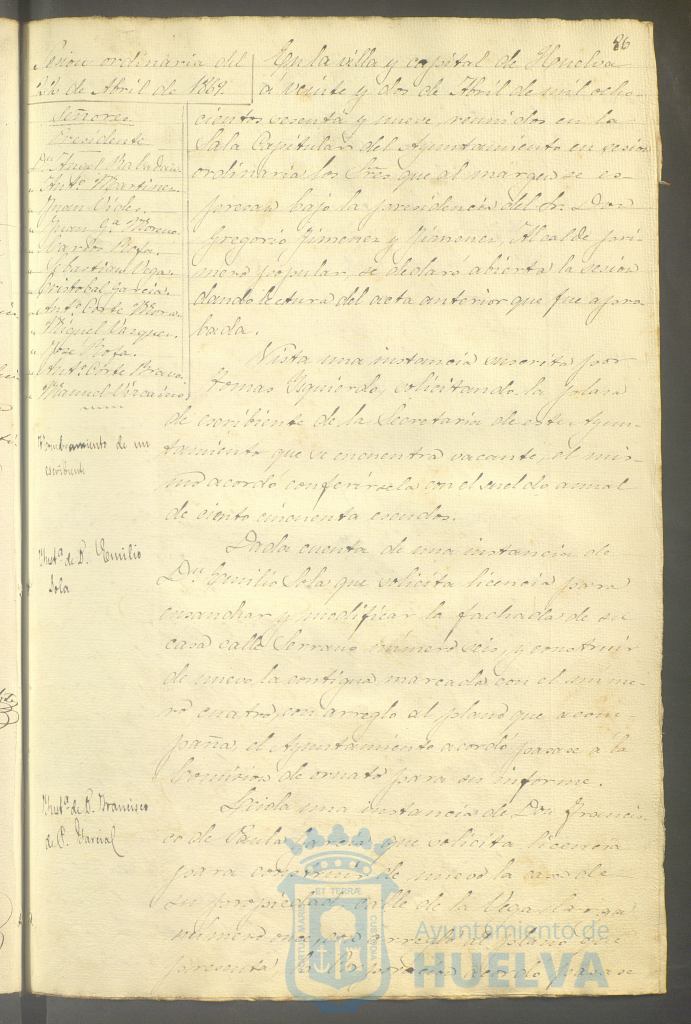 86
Sesion ordinaria del
22 de Abril de 1869.
Señores
Presidente
Dn. Angel
" Anto. Martinez.
" Juan Vides.
" Juan Ga. Moreno
" Carlos Rofa.
" Sebastian Vega.
" Cristobal Garcia.
" Anto. Corte Mora.
" Miguel Vazquez.
" Jose Rofa.
" Anto. Corte Bravo
" Manuel Vizcaino
En la villa y capital de Huelva
á veinte y dos de Abril de mil ocho-
cientos sesenta y nueve, reunidos en la
Sala Capitular del Ayuntamiento en sesion
ordinaria los Sres. que al margen se es-
presan bajo la presidencia del Sr. Don
Gregorio Gimenez y Gimenez, Alcalde pri-
mero popular, se declaró abierta la sesion
dando lectura del acta anterior que fue apro-
bada.
Nombramiento de un
escribiente
Vista una instancia suscrita por
Tomas Yzquierdo, solicitando la plaza
de escribiente de la Secretaria de este Ayun-
tamiento que se encuentra vacante, el mis-
mo acordó conferirsela con el sueldo anual
de ciento cincuenta escudos.
Insta. de D. Emilio
Sola
Dada cuenta de una instancia de
Dn. Emilio Sola que solicita licencia para
ensanchar y modificar la fachada de su
casa calle Serrano número seis, y construir
de nuevo la contigua marcada con el nume-
ro cuatro, con arreglo al plano que acom-
paña, el Ayuntamiento acordó pasase á la
Comision de ornato para su informe.
Insta. de D. Francisco
de P.
Leida una instancia de Don Francis-
co de Paula que solicita licencia
para construir de nuevo la casa de
su propiedad calle de la Vega larga
número once, con arreglo al plano que
presenta la Corporacion acordó pasase
PORTUS MARIS ET TERRÆ CUSTODIA
Ayuntamiento de
HUELVA